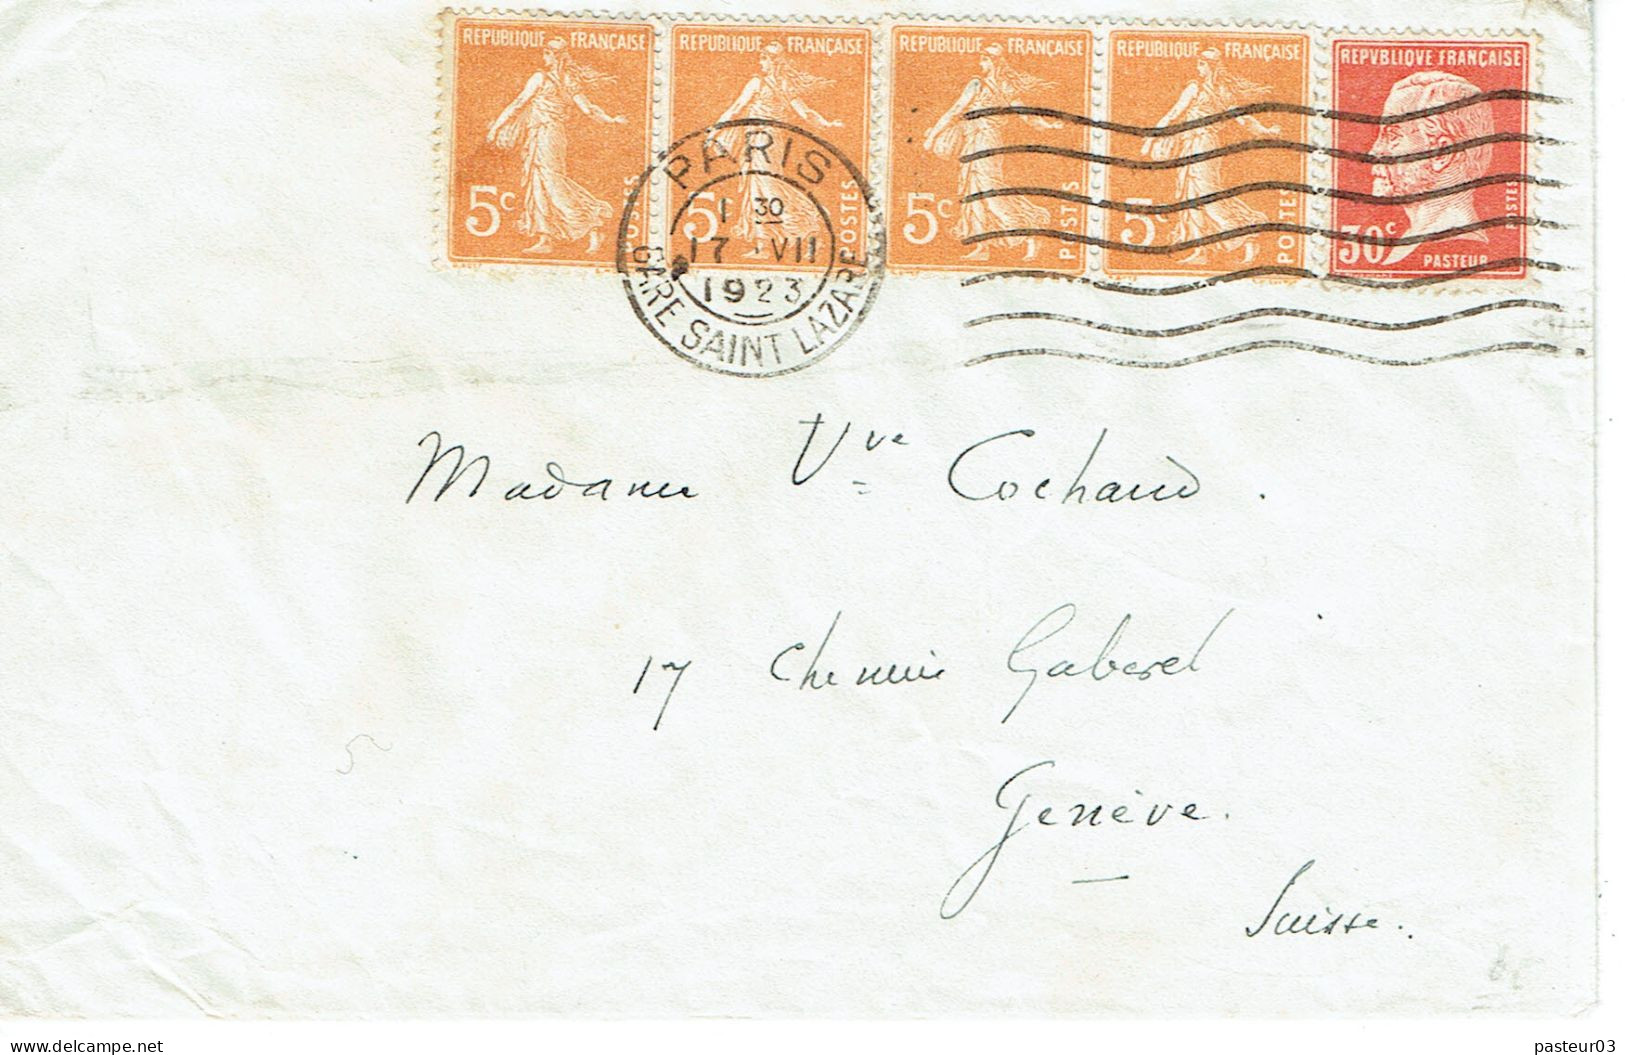 REPUBLIQUE FRANÇAISE REPUBLIQUE FRANÇAISE REPUBLIQUE FRANÇAISE REPUBLIQUE FRANÇAISE REPVBLIQVE FRANÇAISE
5c POSTES 5c POSTES 5c POSTES 5c POSTES 30c POSTES
PASTEUR
PARIS
1 30
17 VII
1923
GARE SAINT LAZARE
Madame Vve Cochaud.
17 Chemin Gaberel
Genève.
Suisse.
delcampe.net
pasteur03